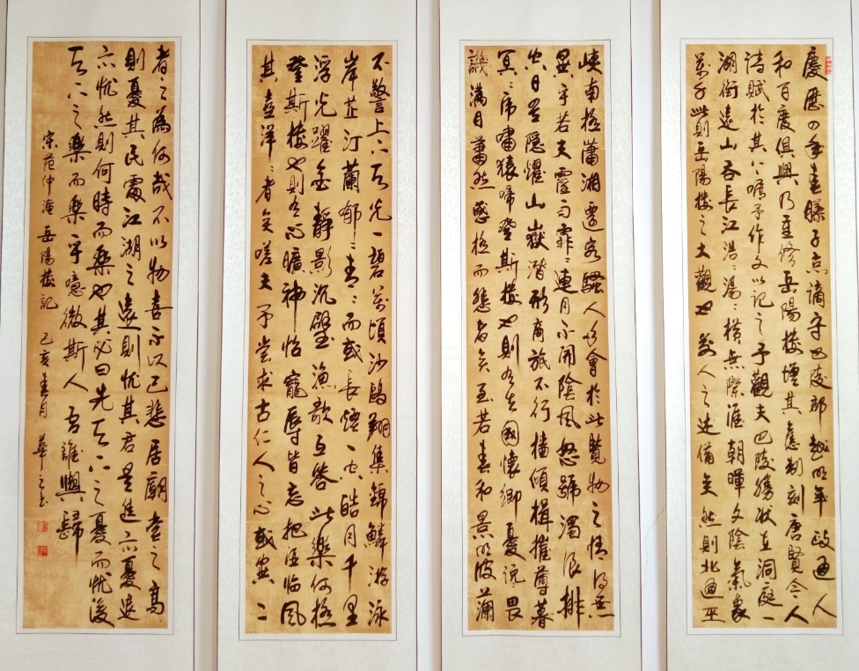 慶歷四年春滕子京謫守巴陵郡越明年政通人
和百廢俱興乃重修岳陽樓增其舊制刻唐賢今人
詩賦於其上囑予作文以記之予觀夫巴陵勝狀在洞庭一
湖銜遠山吞長江浩浩湯湯橫無際涯朝暉夕陰氣象
萬千此則岳陽樓之大觀也前人之述備矣然則北通巫
峽南極瀟湘遷客騷人多會於此覽物之情得無
異乎若夫霪雨霏霏連月不開陰風怒號濁浪排
空日星隱耀山嶽潛形商旅不行檣傾楫摧薄暮
冥冥虎嘯猿啼登斯樓也則有去國懷鄉憂讒畏
譏滿目蕭然感極而悲者矣至若春和景明波瀾
不驚上下天光一碧萬頃沙鷗翔集錦鱗游泳
岸芷汀蘭郁郁青青而或長煙一空皓月千里
浮光躍金靜影沉璧漁歌互答此樂何極
登斯樓也則有心曠神怡寵辱皆忘把酒臨風
其喜洋洋者矣嗟夫予嘗求古仁人之心或異二
者之為何哉不以物喜不以己悲居廟堂之高
則憂其民處江湖之遠則憂其君是進亦憂退
亦憂然則何時而樂也其必曰先天下之憂而憂後
天下之樂而樂乎噫微斯人吾誰與歸
宋范仲淹岳陽樓記 己亥春月 華之書